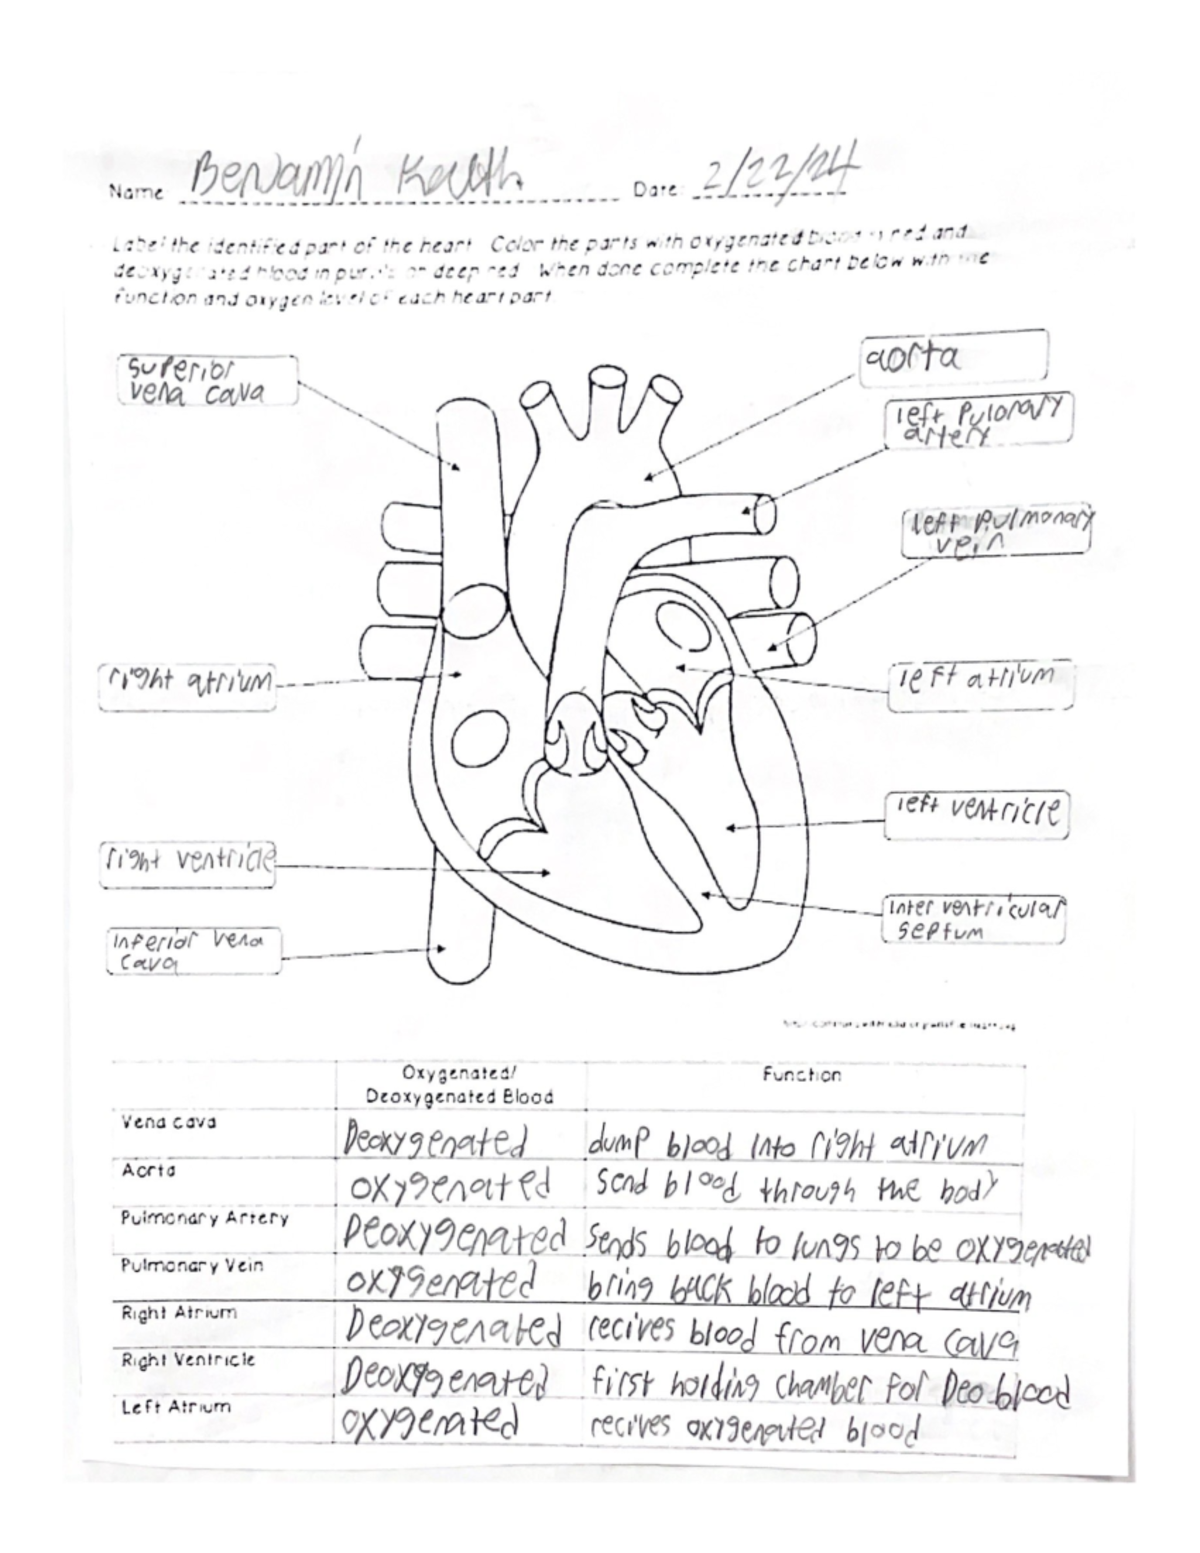 Name Benjamin
Date: 2/22/24
Label the identified part of the heart. Color the parts with oxygenated blood in red and
deoxygenated blood in purple or deep red. When done complete the chart below with the
function and oxygen level of each heart part.
superior
vena cava
aorta
left Pulonary
artery
left Pulmonary
vein
right atrium
left atrium
left ventricle
right ventricle
inter ventricular
septum
Inferior vena
cava
Oxygenated/
Deoxygenated Blood
Function
Vena cava
Deoxygenated
dump blood into right atrium
Aorta
oxygenated
send blood through the body
Pulmonary Artery
Deoxygenated
sends blood to lungs to be oxygenated
Pulmonary Vein
oxygenated
bring back blood to left atrium
Right Atrium
Deoxygenated
recives blood from vena cava
Right Ventricle
Deoxygenated
first holding chamber for Deo blood
Left Atrium
oxygenated
recives oxygenated blood